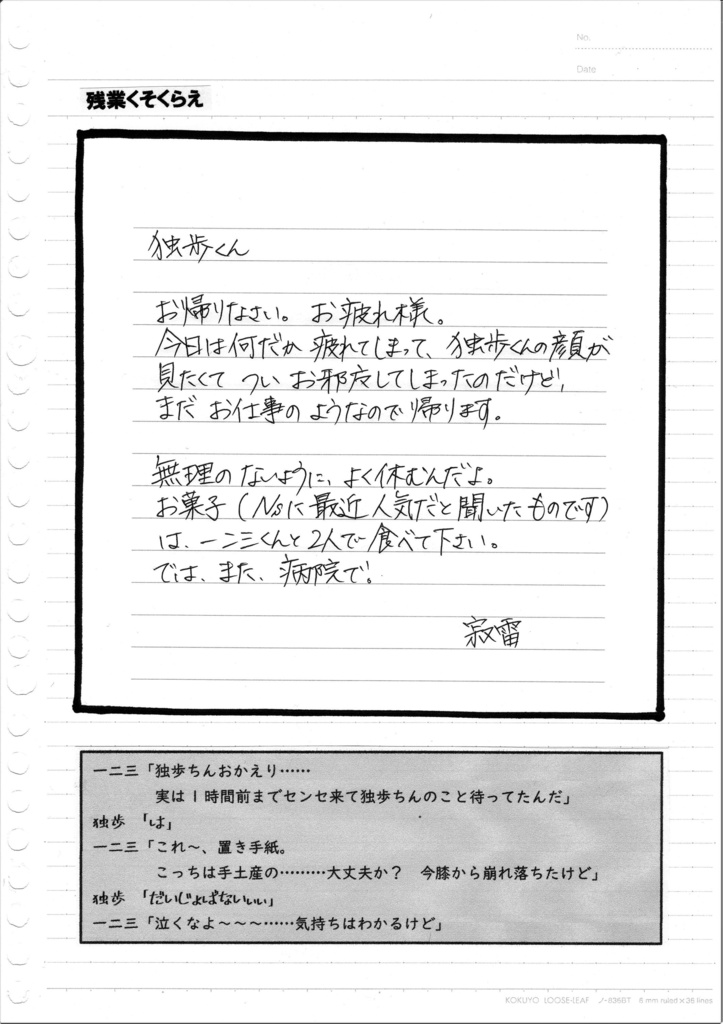 No.
Date
残業くそくらえ
独歩くん
お帰りなさい。お疲れ様。
今日は何だか疲れてしまって、独歩くんの顔が
見たくてついお邪广してしまったのだけど、
まだお仕事のようなので帰ります。
無理のないように、よく休むんだよ。
お菓子(Nsに最近人気だと聞いたものです)
は、一二三くんと2人で食べて下さい。
では、また、病院で。
寂雷
一二三「独歩ちんおかえり……
実は1時間前までセンセ来て独歩ちんのこと待ってたんだ」
独歩「は」
一二三「これ〜、置き手紙。
こっちは手土産の………大丈夫か？　今膝から崩れ落ちたけど」
独歩「だいじょばないぃぃ」
一二三「泣くなよ〜〜〜……気持ちはわかるけど」
KOKUYO LOOSE-LEAF ノ-836BT 6 mm ruled×36 lines